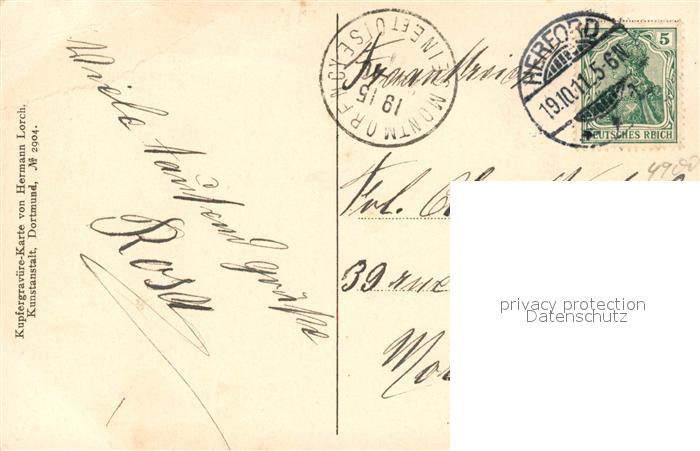 Kupfergravüre-Karte von Hermann Lorch,
Kunstanstalt, Dortmund, № 2904.
Viele tausend grüße
Rosa
MONTMORENCY SEINE ET OISE
19 15
HERFORD
19.10.11.5-6N
5
DEUTSCHES REICH
Frankreich
4900
Frl.
39 rue
privacy protection
Datenschutz